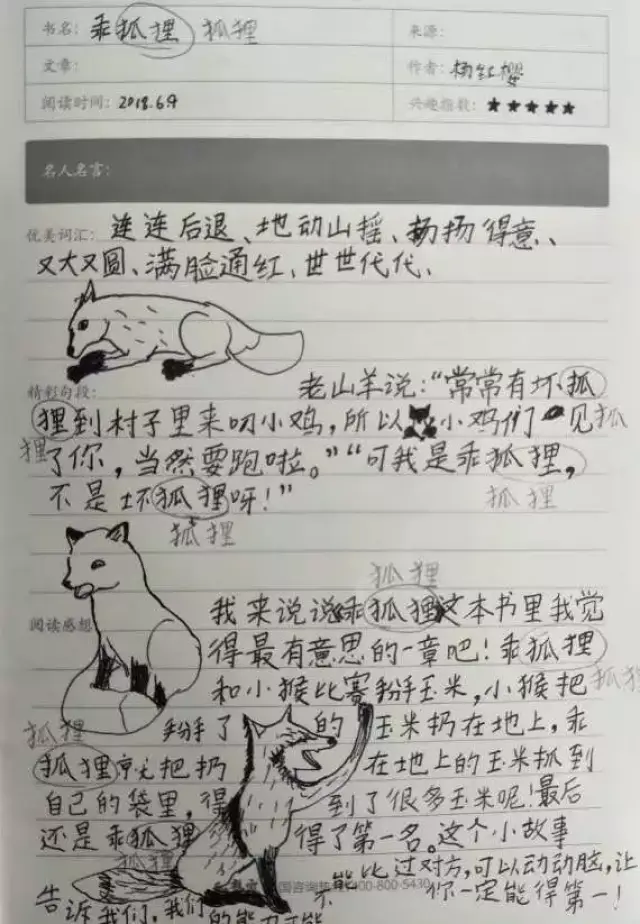 书名：乖狐狸 狐狸
来源：
文章：
作者：杨红樱
阅读时间：2018.6.9
兴趣指数：★★★★★
名人名言：
优美词汇：连连后退、地动山摇、扬扬得意、
又大又圆、满脸通红、世世代代、
精彩句段：
老山羊说："常常有坏狐
狸到村子里来叼小鸡，所以小鸡们见狐
狸了你，当然要跑啦。""可我是乖狐狸，
不是坏狐狸呀！" 狐狸
狐狸
狐狸
阅读感想：
我来说说乖狐狸这本书里我觉
得最有意思的一章吧！乖狐狸
和小猴比赛掰玉米，小猴把 狐狸
狐狸 掰了的玉米扔在地上，乖
狐狸就把扔在地上的玉米抓到
自己的袋里，得到了很多玉米呢！最后
还是乖狐狸得了第一名。这个小故事
狐狸
告诉我们，我们的能力不能比过对方，可以动动脑，让
你一定能得第一！
国咨询热 400-800-5430